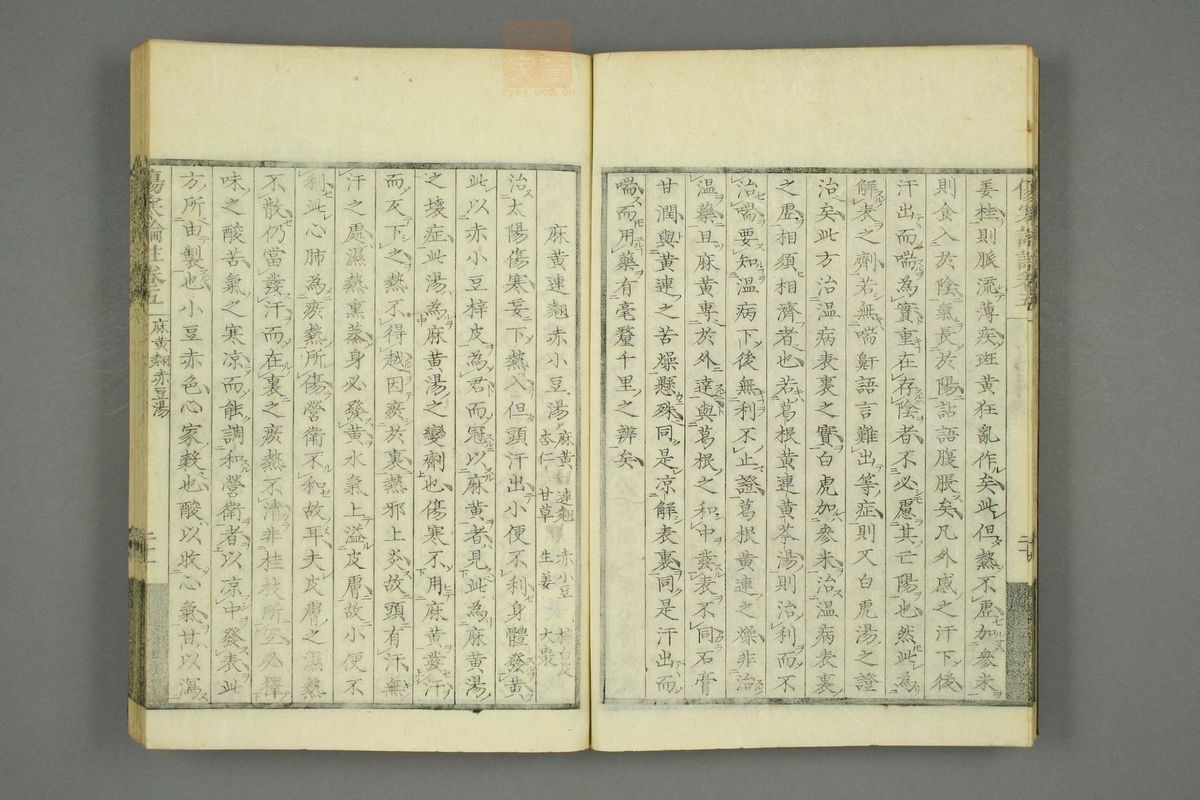 姜桂則脈流薄疾斑黃狂亂作矣此但熱不虛加參米
則食入於陰氣長於陽詀語腹脹矣凡外感之汗下後
汗出而喘為實重在存陰者不必慮其亡陽也然此為
解表之劑若無喘鼾語言難出等症則又白虎湯之證
治矣此方治溫病表裏之實白虎加參米治溫病表裏
之虛相須相濟者也若葛根黃連黃芩湯則治利而不
治喘要知溫病下後無利不止證葛根黃連之燥非治
溫藥且麻黃專於外達與葛根之和中發表不同石膏
甘潤與黃連之苦燥懸殊同是凉解表裏同是汗出而
喘而用藥有毫釐千里之辨矣
麻黃連翹赤小豆湯 麻黃 連翹 赤小豆
杏仁 甘草 生姜 大棗
治太陽傷寒妄下熱入但頭汗出小便不利身體發黃
此以赤小豆梓皮為君而冠以麻黃者見此為麻黃湯
之壞症此湯為麻黃湯之變劑也傷寒不用麻黃發汗
而反下之熱不得越因瘀於裏熱邪上炎故頭有汗無
汗之處濕熱熏蒸身必發黃水氣上溢皮膚故小便不
利此心肺為瘀熱所傷營衛不和故耳夫皮膚之濕熱
不散仍當發汗而在裏之瘀熱不清非桂枝所宜必擇
味之酸苦氣之寒凉而能調和營衛者以凉中發表此
方所由製也小豆赤色心家穀也酸以收心氣甘以瀉
傷寒論註 卷五 麻黃翹赤豆湯